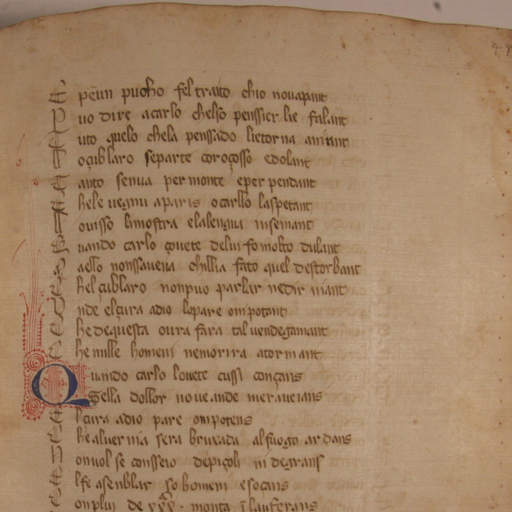 E pēun pucho fel traito chio nouapant
P uo dire acarlo chelso penssier lie falant
T uto quelo chela penssado lietorna aniant
E oçiblaro separte coroçosso edolant
T anto senua per monte eper pendant
C hele uegnu aparis ocarllo laspetant
L ouisso limostra elalengua insemant
Q uando carlo çouete deluj fo molto dulant
a ello nonssauena chillia fato quel destorbant
C hel çiblaro nonpuo parler nedir niant
nde elçura adio lopare omipotant
C he dequesta oura fara tal uendegamant
C he mille homeni nemorira atormant
Q uando carlo louete cussi conçans
Della dollor noue unde meraueians
E lçura adio pare omipotens
C he aluerma sera bruxada alfuogo ardans
D onuol se consseio depiçoli nidegrans
E lfe asenblar so homeni esocans
C onplui de xxx monta